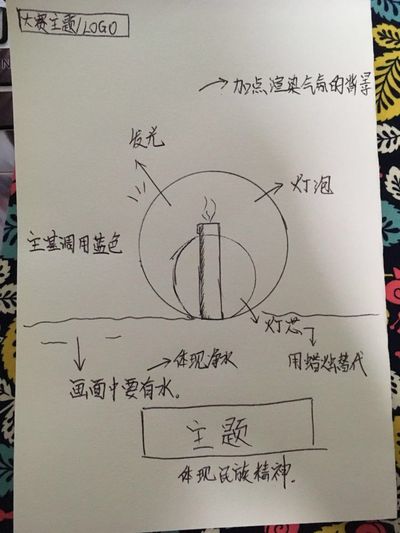 大赛主题/LOGO
加点渲染气氛的背景
发光
灯泡
主基调用蓝色
灯芯
体现净水
用蜡烛替代
画面中要有水.
主题
体现民族精神.